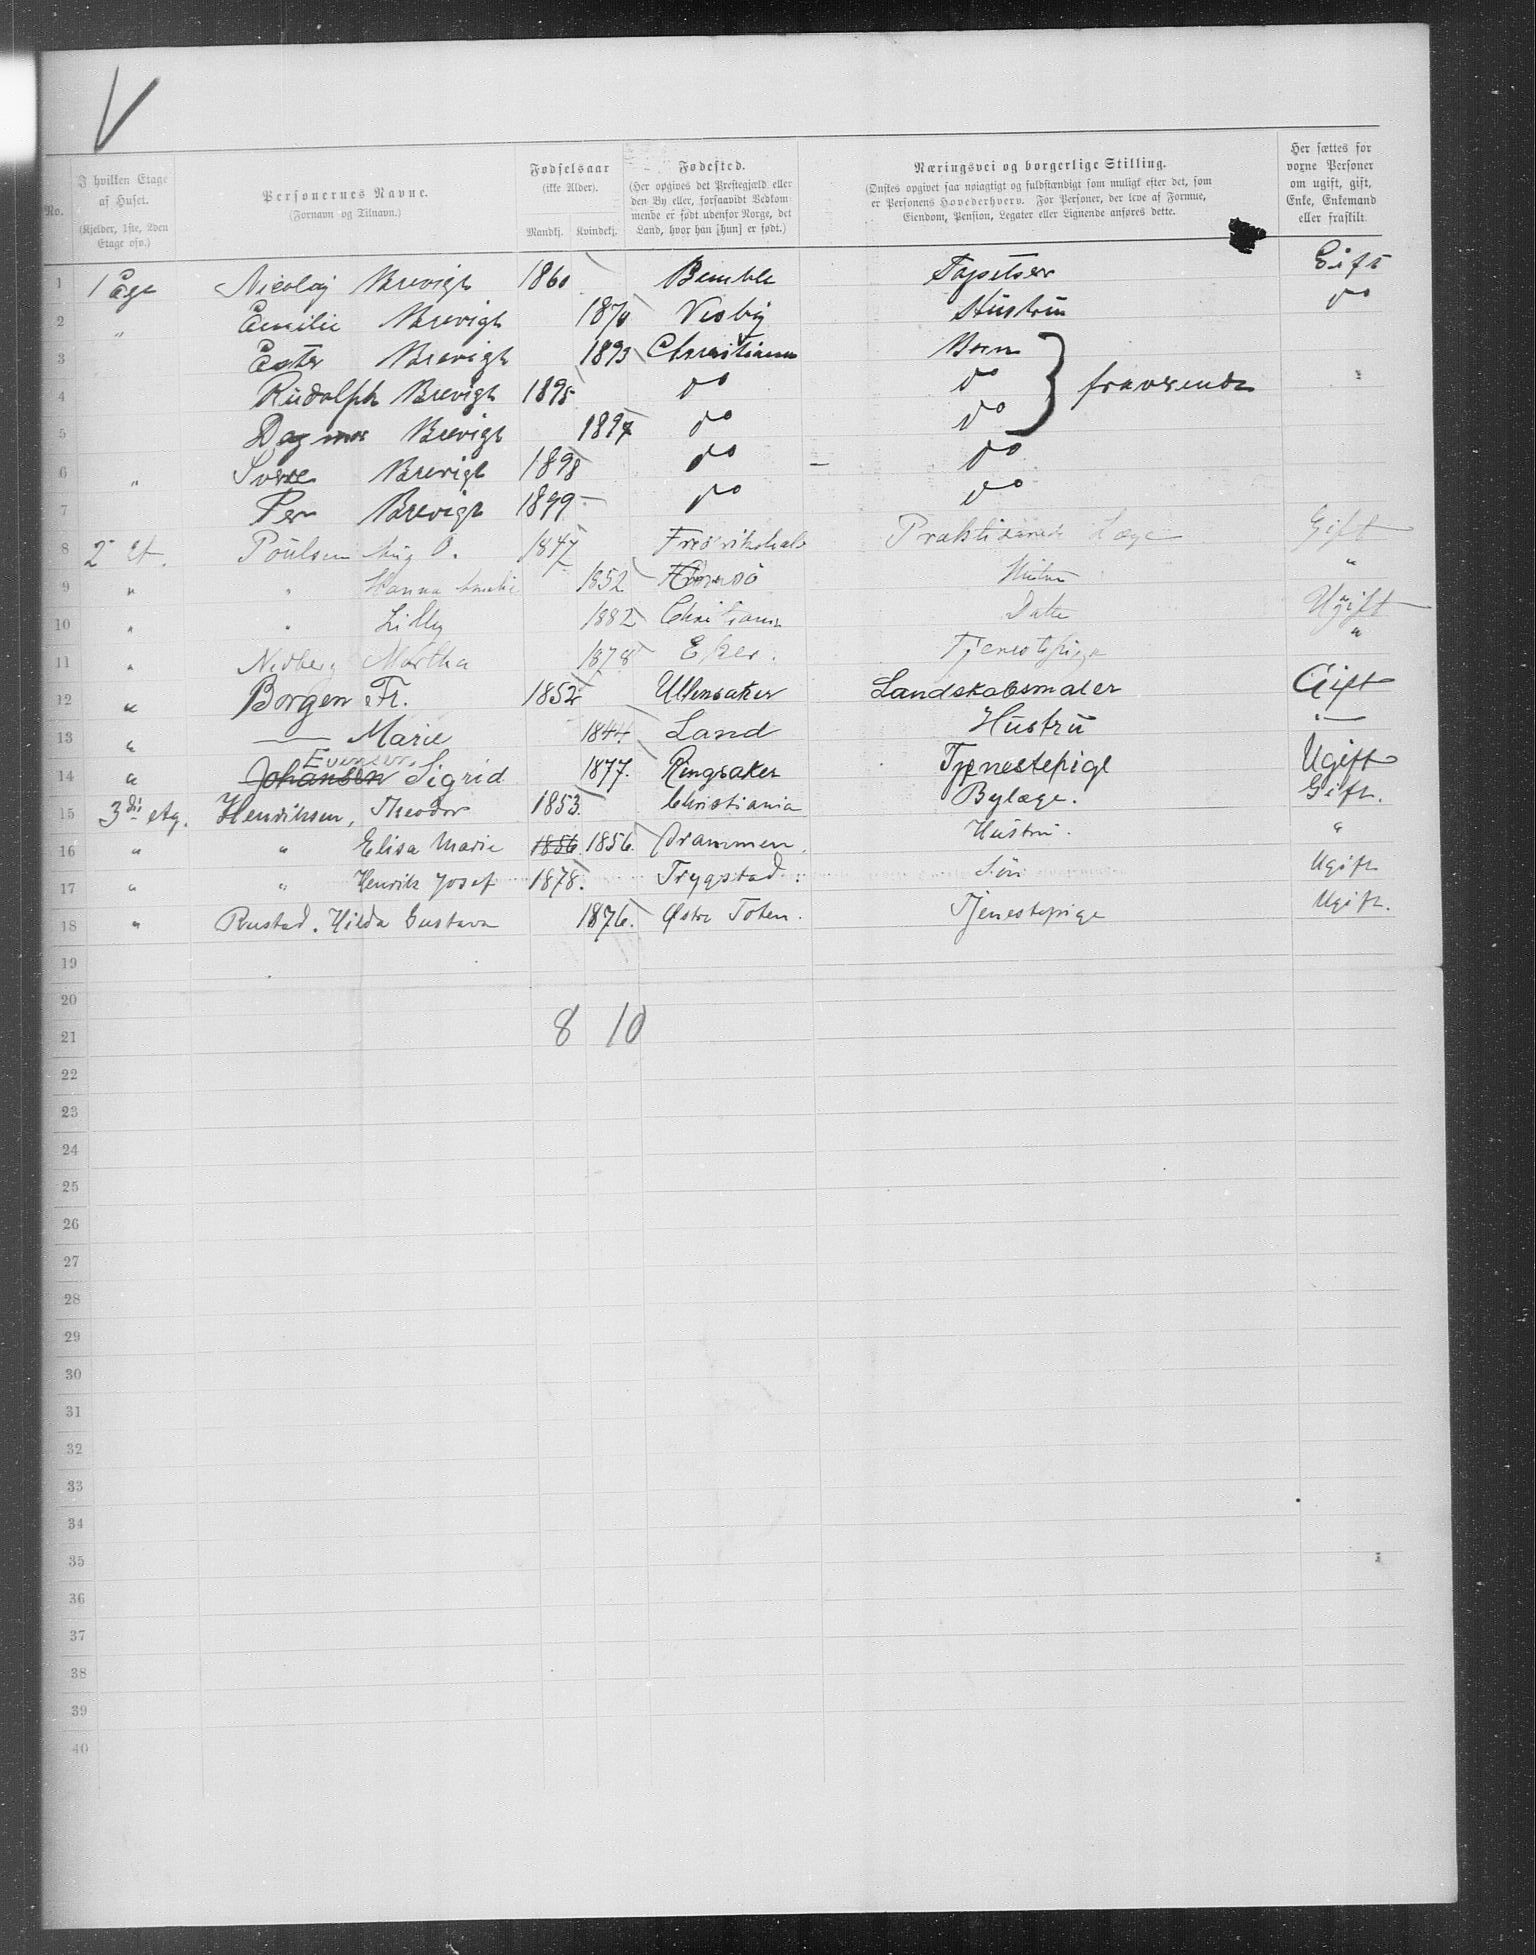 V
No.
I hvilken Etage af Huset. (Kjelder, 1ste, 2den Etage osv.)
Personernes Navne. (Fornavn og Tilnavn.)
Fødselsaar (ikke Alder). Mandkj. Kvindekj.
Fødested. (Her opgives det Prestegjæld eller den By eller, forsaavidt Vedkommende er født udenfor Norge, det Land, hvor han [hun] er født.)
Næringsvei og borgerlige Stilling. (Ønskes opgivet saa nøiagtigt og fuldstændigt som muligt efter det, som er Personens Hovederhverv. For Personer, der leve af Formue, Eiendom, Pension, Legater eller Lignende anføres dette.)
Her sættes for voxne Personer om ugift, gift, Enke, Enkemand eller fraskilt.
1 1 Etge Nicolaj Brevigh 1860 Bamble Tapetser Gift
2 " Emilie Brevigh 1870 Visby Hustru do
3 Ester Brevigh 1893 Christiania Børn
4 Rudolph Brevigh 1895 do do } fraværende
5 Dagmar Brevigh 1897 do do
6 " Sverre Brevigh 1898 do do
7 Per Brevigh 1899 do do
8 2 Et. Poulsen Aug O. 1847 Fredrikshald Praktiserende Læge Gift
9 " " Hanna Amalie 1852 Hustru "
10 " " Lilly 1882 Christiania Datter Ugift
11 " Nedberg Martha 1878 Eker. Tjenestepige "
12 " Borgen Fr. 1852 Ullensaker Landskabsmaler Gift
13 " — Marie 1844 Land Hustru —
14 " Johansen Evensen Sigrid 1877. Ringsaker Tjenestepige Ugift
15 3die Etg. Henriksen, Theodor 1853. Christiania Bylæge. Gift.
16 " " Elisa Marie 1856. 1856. Drammen. Hustru. "
17 " " Henrik Josef 1878. Trygstad. Søn Ugift
18 " Rustad. Hilda Gustava 1876. Østre Toten. Tjenestepige Ugift.
19
20
21 8 10
22
23
24
25
26
27
28
29
30
31
32
33
34
35
36
37
38
39
40